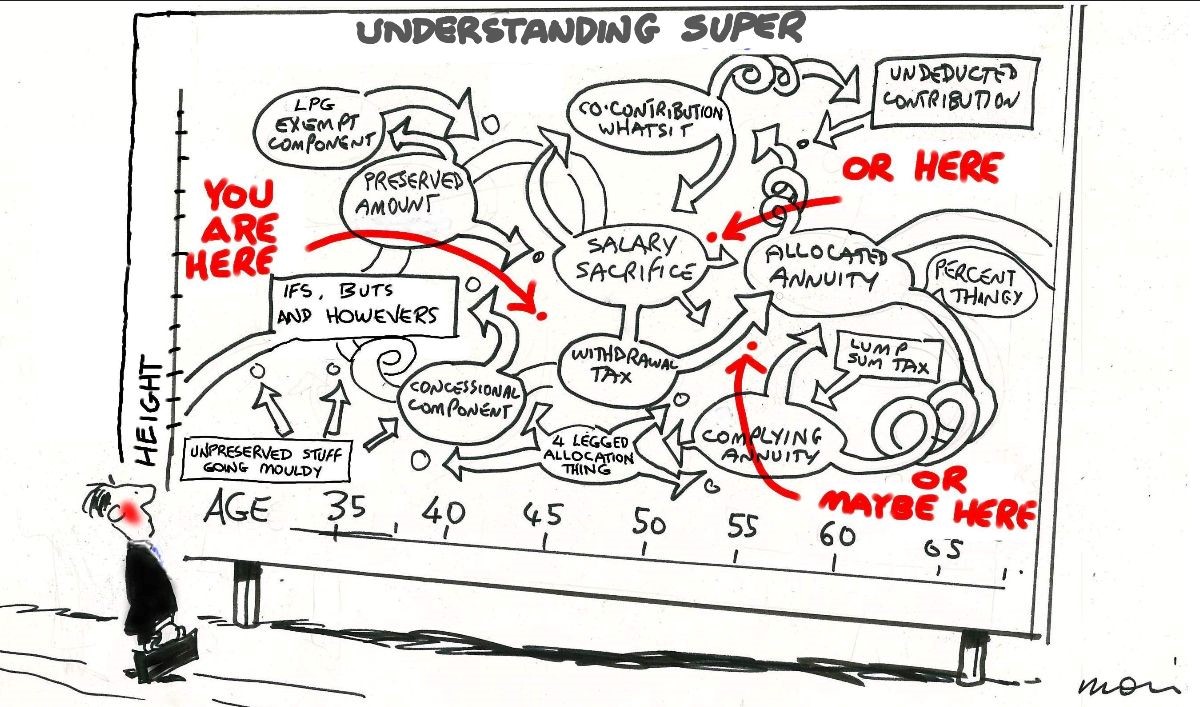 UNDERSTANDING SUPER
LPG
EXEMPT
COMPONENT
CO-CONTRIBUTION
WHATSIT
UNDEDUCTED
CONTRIBUTION
OR HERE
YOU
ARE
HERE
PRESERVED
AMOUNT
SALARY
SACRIFICE
ALLOCATED
ANNUITY
PERCENT
THINGY
IFS, BUTS
AND HOWEVERS
WITHDRAWAL
TAX
LUMP
SUM TAX
CONCESSIONAL
COMPONENT
UNPRESERVED STUFF
GOING MOULDY
4 LEGGED
ALLOCATION
THING
COMPLYING
ANNUITY
OR
MAYBE HERE
HEIGHT
AGE 35 40 45 50 55 60 65
moir